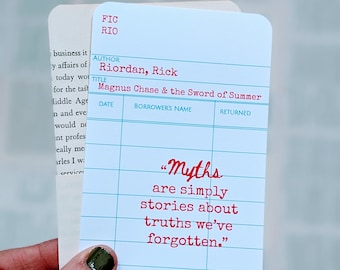 FIC
RIO
AUTHOR
Riordan, Rick
TITLE
Magnus Chase & the Sword of Summer
DATE BORROWER'S NAME RETURNED
"Myths
are simply
stories about
truths we've
forgotten."
business it
of
today would
for the tail
Middle Age
en
would
not